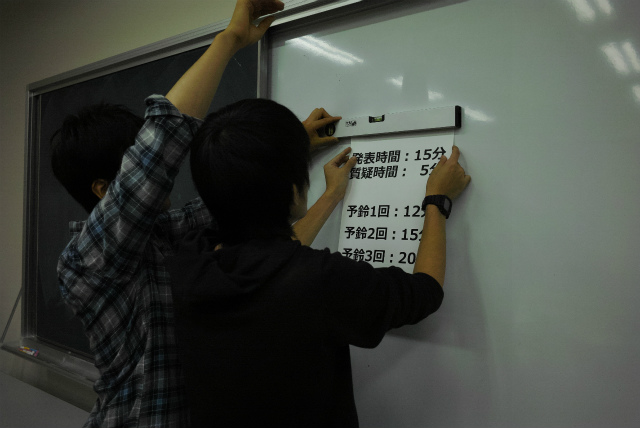 発表時間：15分
質疑時間： 5分
予鈴1回：12分
予鈴2回：15
予鈴3回：20